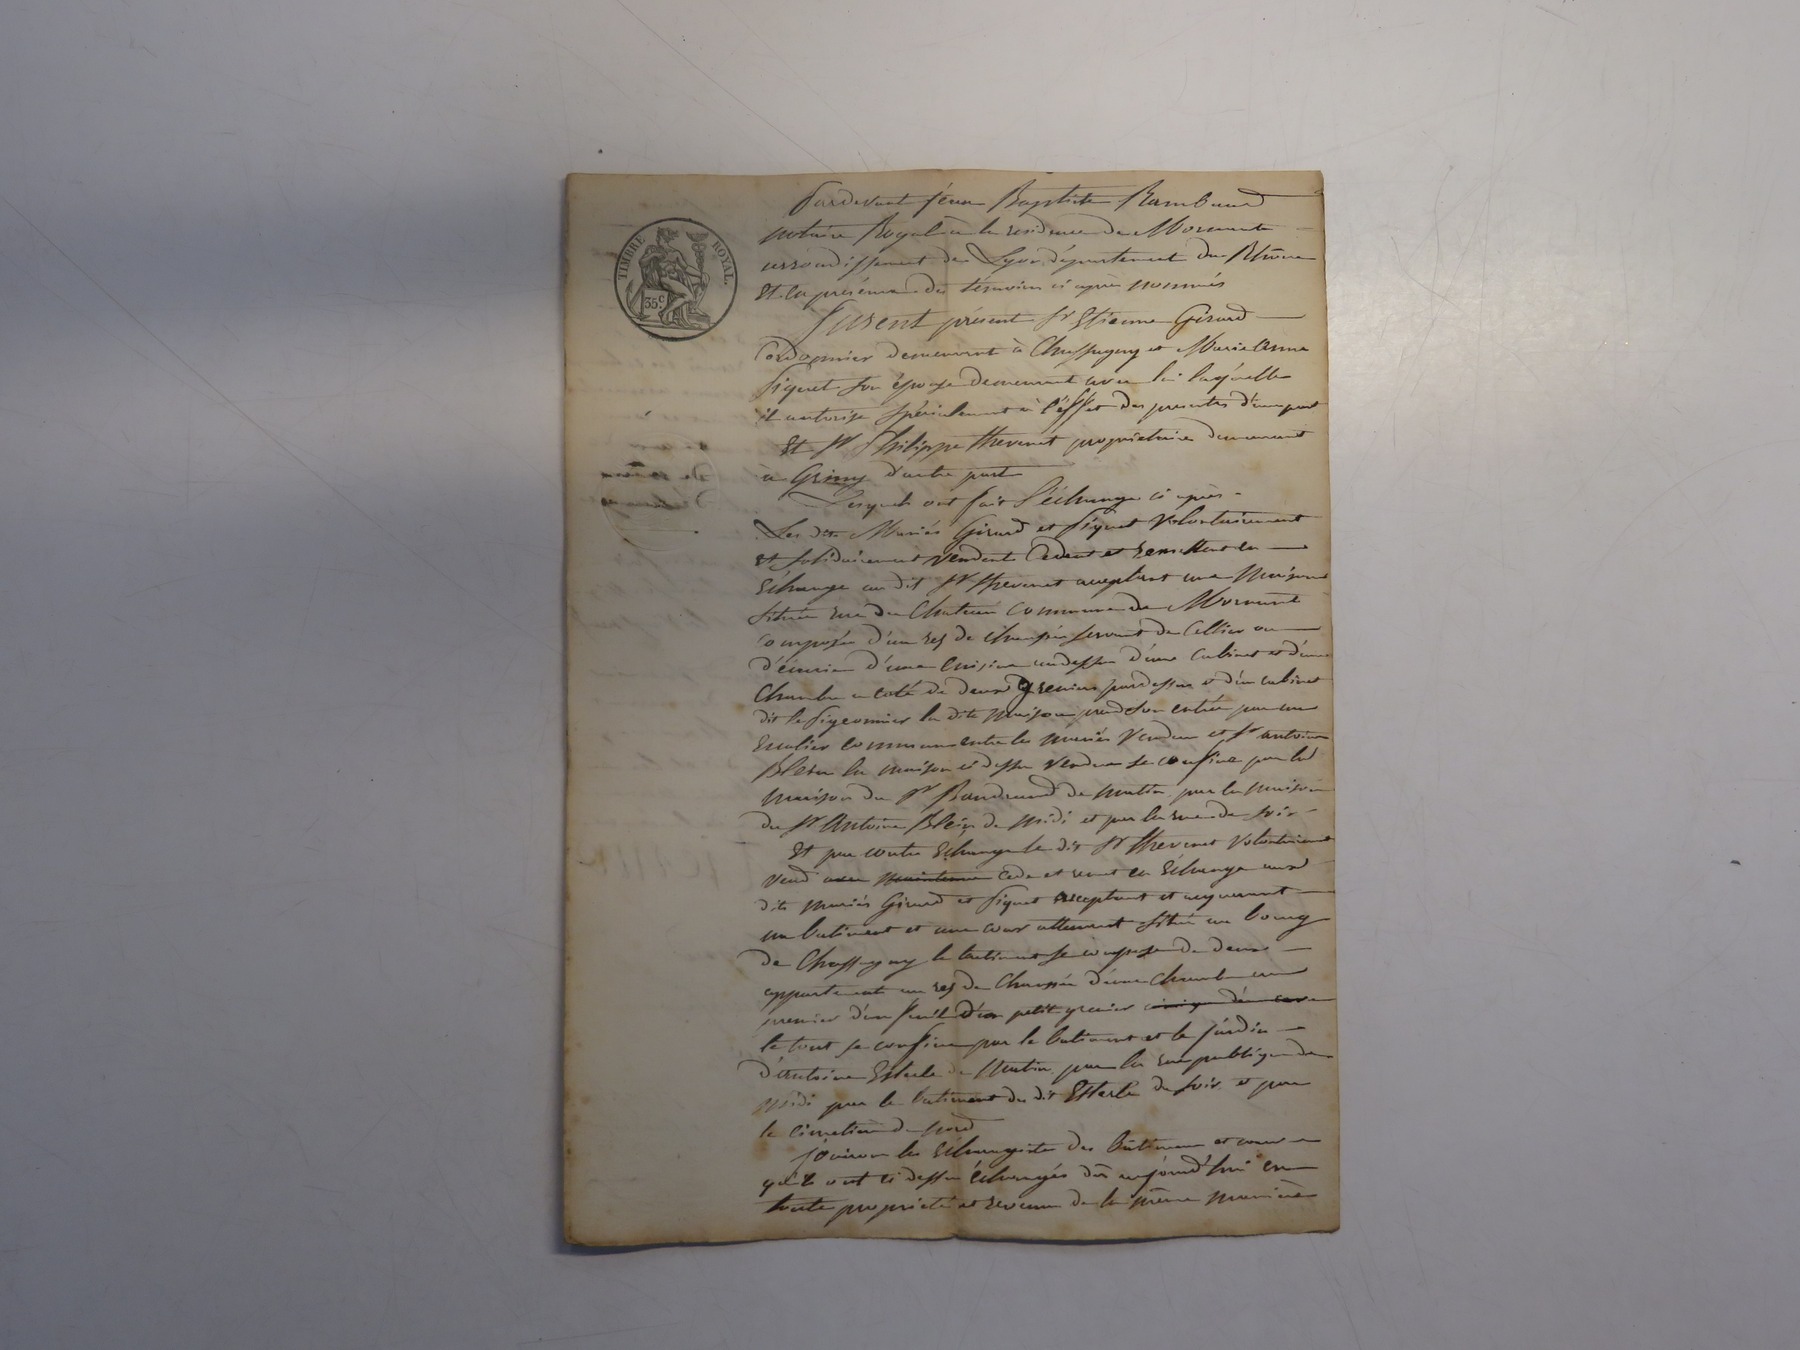 TIMBRE ROYAL.
35c
Pardevant Jean Baptiste Rambaud
notaire Royal à la residence de Mornant
arrondissement de Lyon département du Rhône
Et en présence des temoins ci après nommés
Furent présent Sr Etienne Girard
Cordonnier demeurant à Chassagny et Marie Anne
Piquet son épouse demeurant avec lui laquelle
il autorise spécialement à l'éffet des presentes d'une part
Et Sr Philippe thevenet propriétaire demeurant
à Grigny d'autre part
Lesquels ont fait l'échange ci après
Les dits Mariés Girard et Piquet volontairement
et solidairement vendent cedent et remettent en
Echange au dit Sr thevenet acceptant une Maison
située rue du Chateau commune de Mornant
composée d'un rez de chaussée servant de Cellier ou
d'écurie d'une Cuisine au dessus d'une Cabinet et d'une
Chambre a coté de deux greniers pardessus et d'un cabinet
dit le Pigeonnier la dite maison prend son entrée par un
Escalier commun entre les mariés vendeur et Sr antoine
Blein la maison ci dessus vendue se confine par la
maison du Sr Baudrand de matin par la maison
du Sr Antoine Blein de midi et par la rue de soir
Et par contre échange le dit Sr thevenet volontairement
vend avec maintenue cede et remet en Echange aux
dits mariés Girard et Piquet acceptant et acquerant
un batiment et une cour attenant situé au bourg
de Chassagny le batiment se compose de deux
appartements au rez de Chaussée d'une chambre au
premier d'un fenil d'un petit grenier
le tout se confine par le batiment et le jardin
d'Antoine Esterle de Matin par la rue publique de
Midi par le batiment du dit Esterle du soir et par
le cimetière de nord
Jouiront les Echangistes des Batiments et cour
qu'ils ont ci dessus échangés dès aujourd'hui en
toute propriété et revenu de la même manière